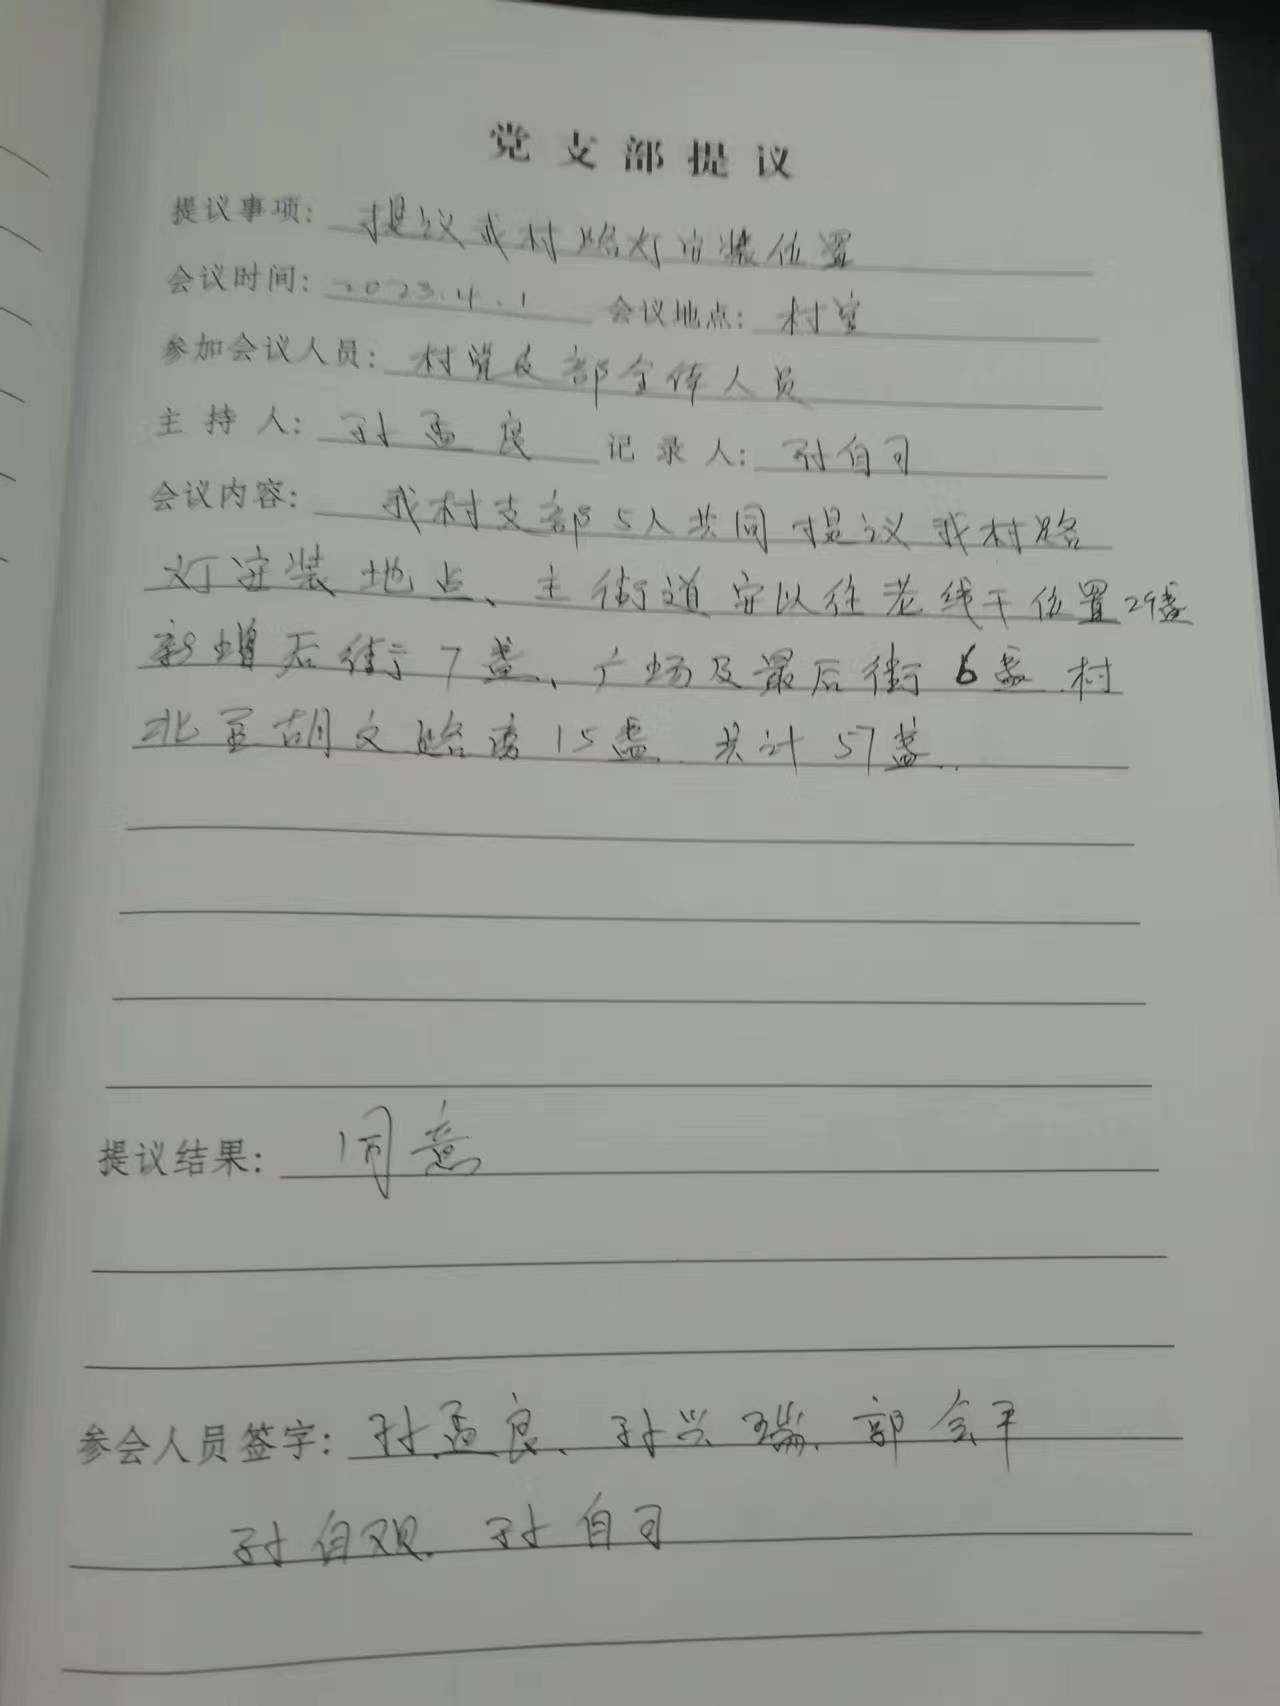 党支部提议
提议事项: 提议我村路灯安装位置
会议时间: 2023.4.1 会议地点: 村室
参加会议人员: 村党支部全体人员
主持人: 孙孟良 记录人: 孙自习
会议内容: 我村支部5人共同提议我村路
灯安装地点、主街道安以往老线干位置29盏
新增后街7盏、广场及最后街6盏.村
北至胡 路 15盏.共计57盏.
提议结果: 同意
参会人员签字: 孙孟良、孙兴瑞、郭会平
孙自观、孙自习